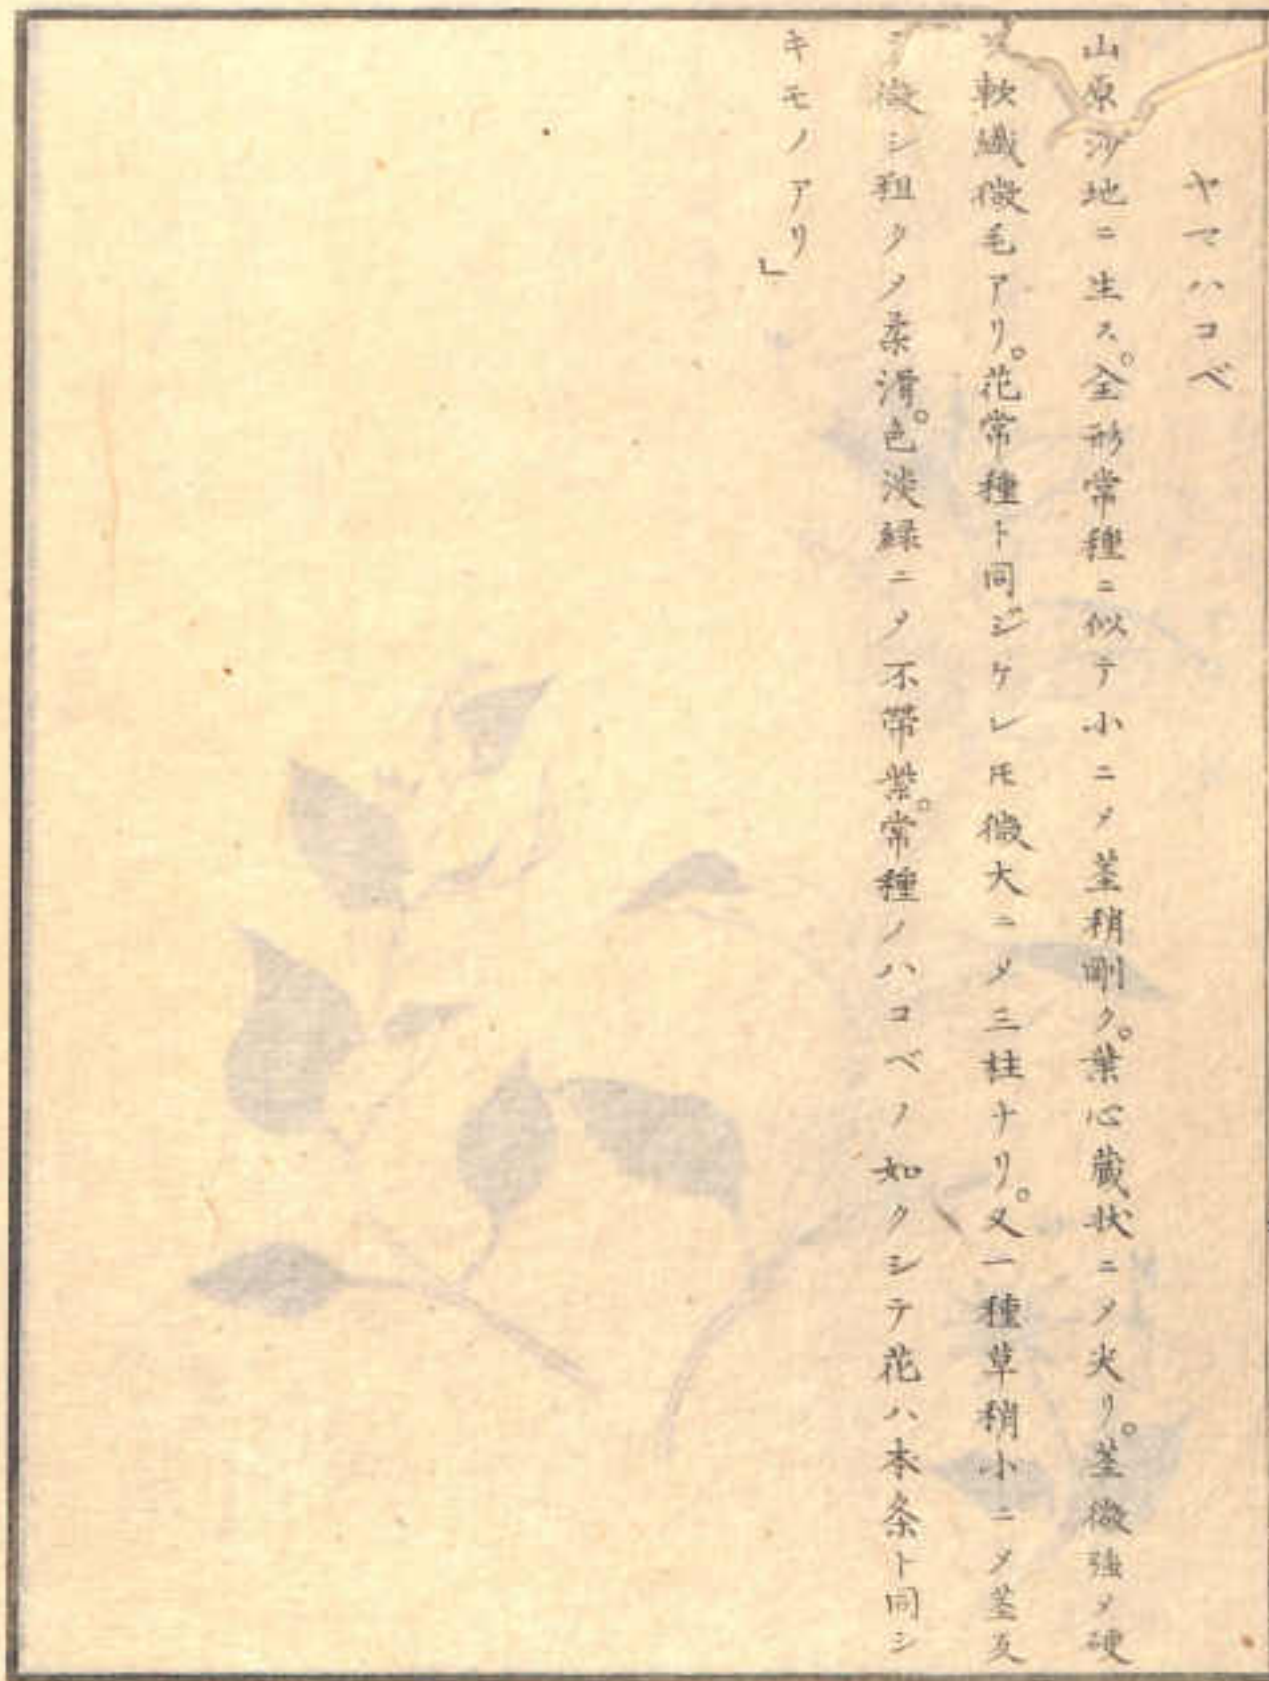 ヤマハコベ
山原沙地ニ生ス。全形常種ニ似テ小ニ〆茎稍剛ク。葉心蔵状ニ〆尖リ。茎微強〆硬
軟繊微毛アリ。花常種ト同ジケレ𪜈微大ニ〆三柱ナリ。又一種草稍小ニ〆茎及
微シ粗ク〆柔滑。色淡緑ニ〆不帯紫。常種ノハコベノ如クシテ花ハ本条ト同シ
キモノアリ」